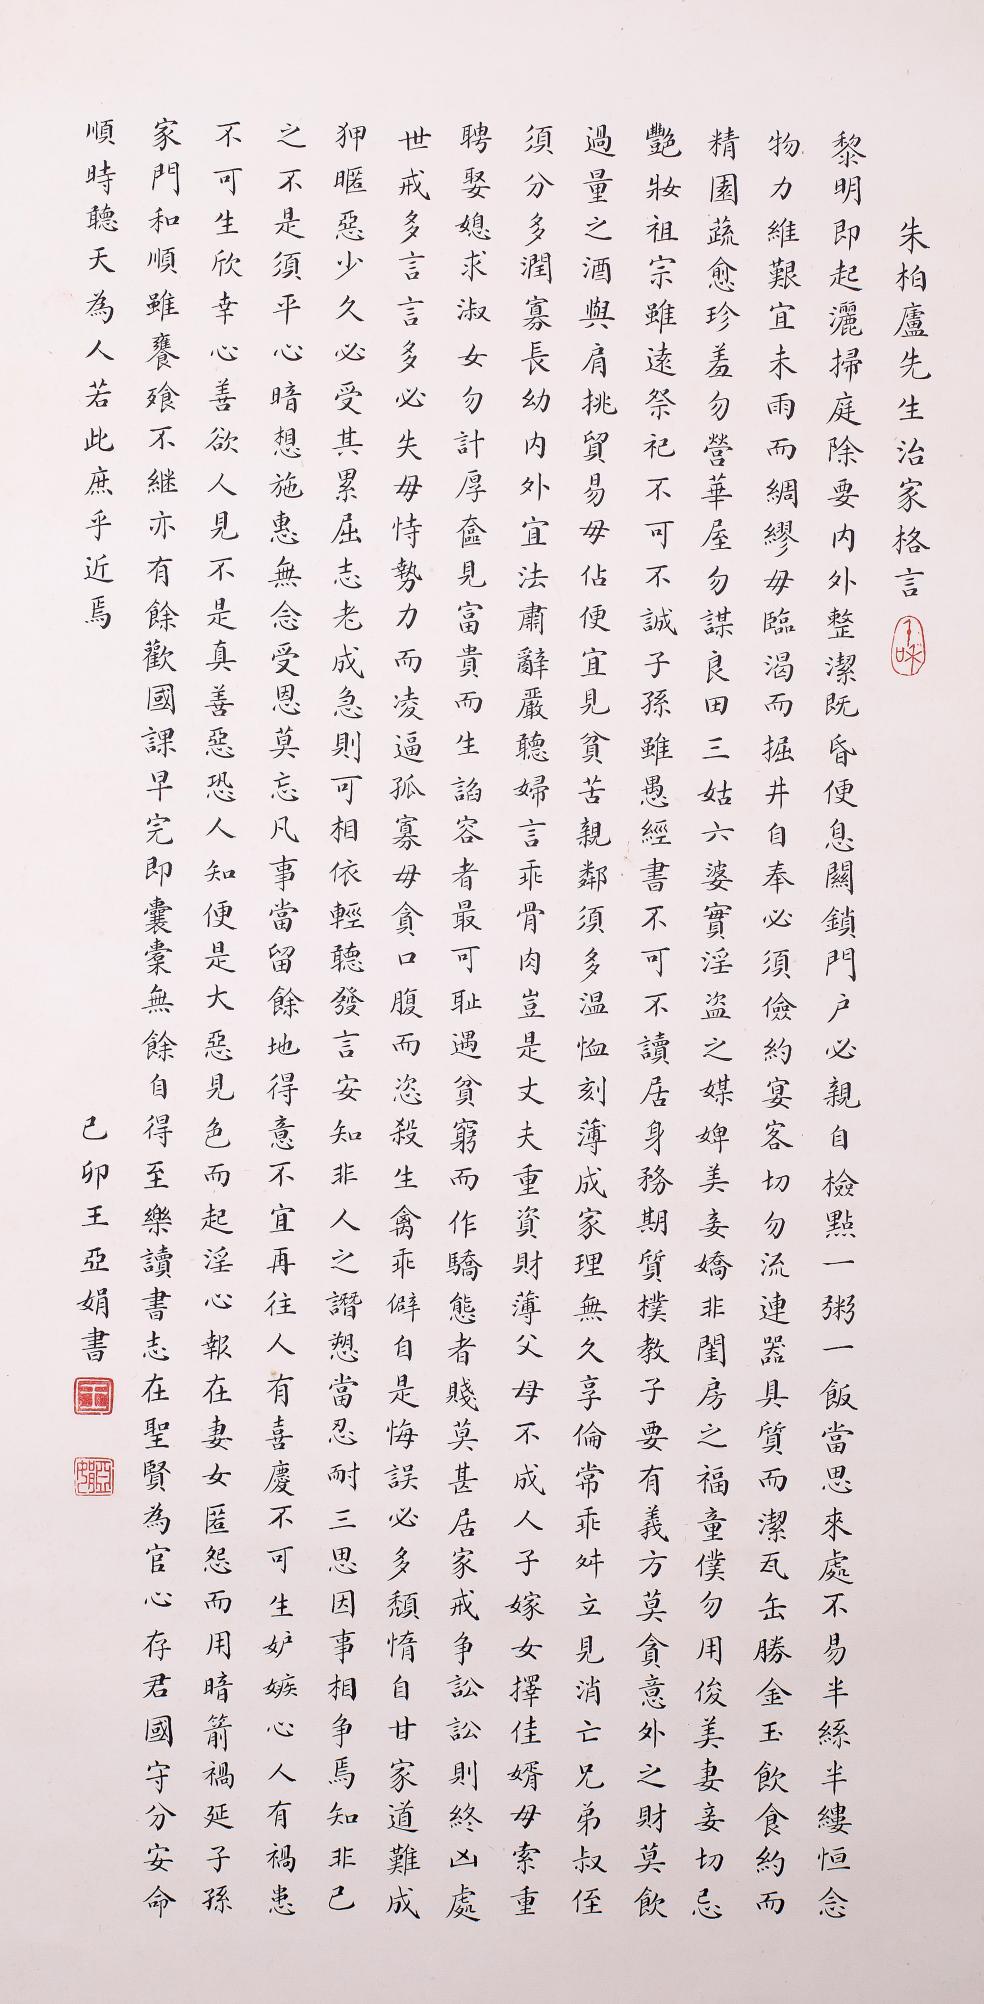 朱柏廬先生治家格言
黎明即起灑掃庭除要内外整潔既昏便息關鎖門户必親自檢點一粥一飯當思來處不易半絲半縷恒念
物力維艱宜未雨而綢繆毋臨渴而掘井自奉必須儉約宴客切勿流連器具質而潔瓦缶勝金玉飲食約而
精園蔬愈珍羞勿營華屋勿謀良田三姑六婆實淫盜之媒婢美妾嬌非閨房之福童僕勿用俊美妻妾切忌
艷妝祖宗雖遠祭祀不可不誠子孫雖愚經書不可不讀居身務期質樸教子要有義方莫貪意外之財莫飲
過量之酒與肩挑貿易毋佔便宜見貧苦親鄰須多温恤刻薄成家理無久享倫常乖舛立見消亡兄弟叔侄
須分多潤寡長幼内外宜法肅辭嚴聽婦言乖骨肉豈是丈夫重資財薄父母不成人子嫁女擇佳婿毋索重
聘娶媳求淑女勿計厚奩見富貴而生諂容者最可耻遇貧窮而作驕態者賤莫甚居家戒争訟訟則終凶處
世戒多言言多必失毋恃勢力而凌逼孤寡毋貪口腹而恣殺生禽乖僻自是悔誤必多頹惰自甘家道難成
狎暱惡少久必受其累屈志老成急則可相依輕聽發言安知非人之譖愬當忍耐三思因事相争焉知非己
之不是須平心暗想施惠無念受恩莫忘凡事當留餘地得意不宜再往人有喜慶不可生妒嫉心人有禍患
不可生欣幸心善欲人見不是真善惡恐人知便是大惡見色而起淫心報在妻女匿怨而用暗箭禍延子孫
家門和順雖饔飧不継亦有餘歡國課早完即囊橐無餘自得至樂讀書志在聖賢為官心存君國守分安命
順時聽天為人若此庶乎近焉
己卯王亞娟書
王
亞娟